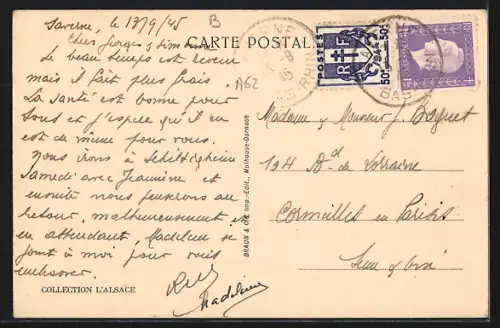 Saverne, le 13/9/45
Chers Georges & Simone
Le beau temps est revenu
mais il fait plus frais
La santé est bonne pour
tous et j'espère qu'il en
est de même pour vous.
Nous irons à Schiltigheim
Samedi avec Jeannine et
ensuite nous penserons au
retour, malheureusement et
en attendant, Madeleine se
joint à moi pour vous
embrasser.
Madeleine
COLLECTION L'ALSACE
B
CARTE POSTALE
A62
BRAUN & Cie Imp.-Edit., Mulhouse-Dornach
POSTES
RF
50c
Madame & Monsieur J.
104 Bd de Lorraine
Cormeilles en Parisis
Seine & Oise